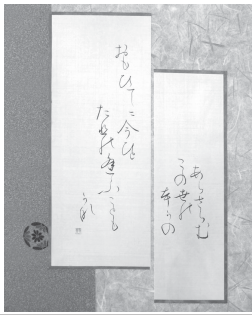 あらさらむ
この世の
本可の
おもひてに今ひと
たひの逢ふことも
か那